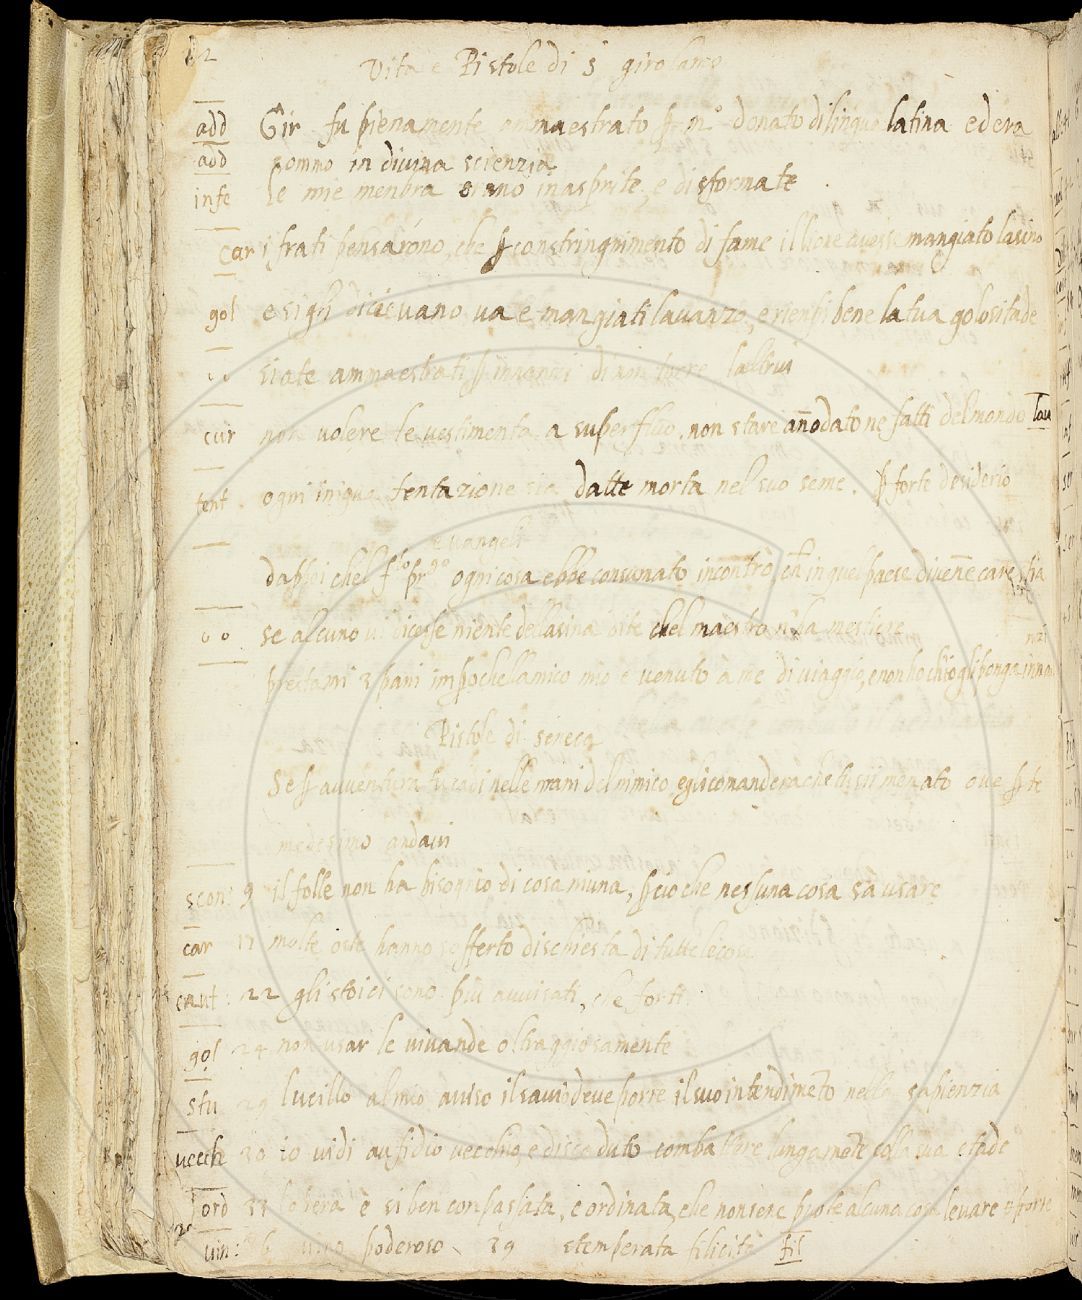 Vita e Pistole di S girolamo
add Gir fu pienamente ammaestrato donato di lingua latina ed era
add sommo in divina scienzia
infe le mie menbra erano inasprite, e disformate
car i frati pensarono, che ꝑ constringnimento di fame il lione avesse mangiato lasino
gol e si gli dicievano va e mangiati lavanzo, e rienpi bene la tua golositade
siate ammaestrati ꝑ innanzi di non torre laltrui
cur non volere le vestimenta a superfluo, non stare añodato ne fatti del mondo lau
tent ogni iniqua tentazione sia datte morta nel suo seme. ꝑ forte desiderio
evangeli
dappoi chel ogni cosa ebbe consumato incontrò, in quel paese divenñe carestia
se alcuno vi dicesse niente dellasina dite chel maestro nha mestiere
prestami 3 pani impochellamico mio è venuto a me di viaggio, e non ho chio gli ponga innanzi
Pistole di seneca
Se ꝑ avventura tu cadi nelle mani del nimico, egli comandera che tu sii menato ove ꝑ te
medesimo andavi
scon: 9 il folle non ha bisognio di cosa niuna, ꝑ cio che nessuna cosa sa usare
car 17 molte oste hanno sofferto dischiesta di tutte le cose
caut: 22 gli stoici sono più avvisati, che forti
gol 24 non usar le vivande oltraggiosamente
stu 29 lucillo al mio aviso il savio deve porre il suo intendimeto nella sapienzia
vecch 30 io vidi aufidio vecchio, e discaduto combattere lungamete colla sua etade
ord 33 lopera è si ben conpassata, e ordinata, che non se ne puote alcuna cosa levare o porre
vin: 6 vino poderoso 39 stemperata filicità fil